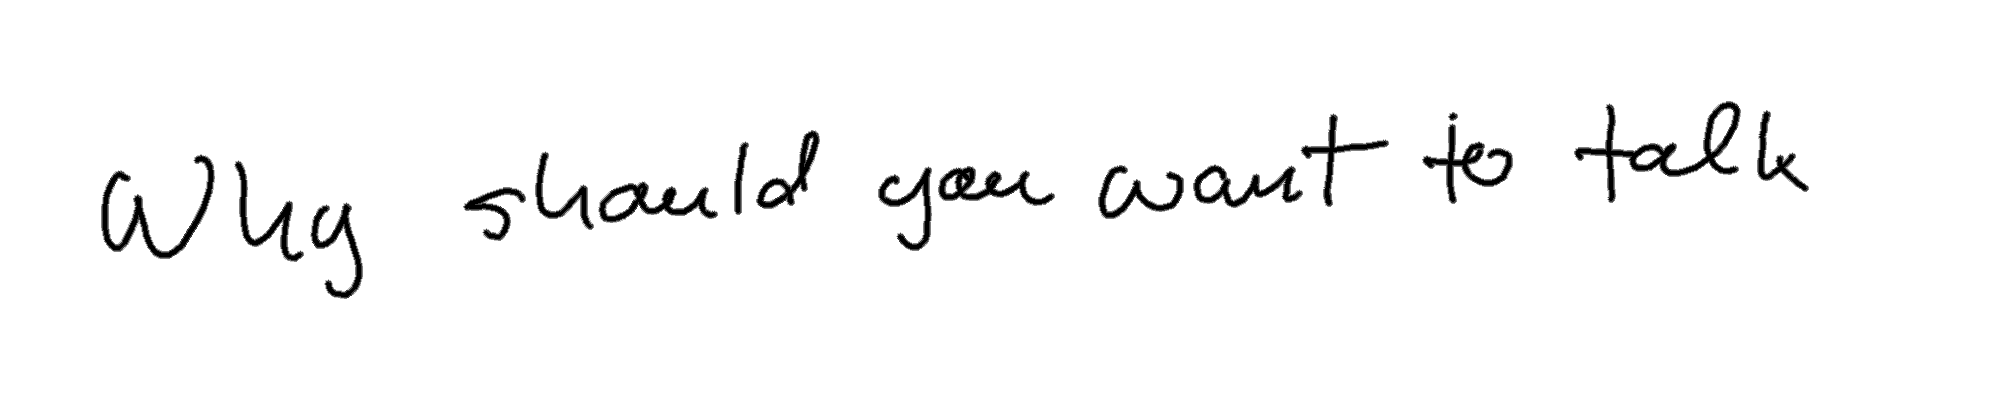 Why should you want to talk